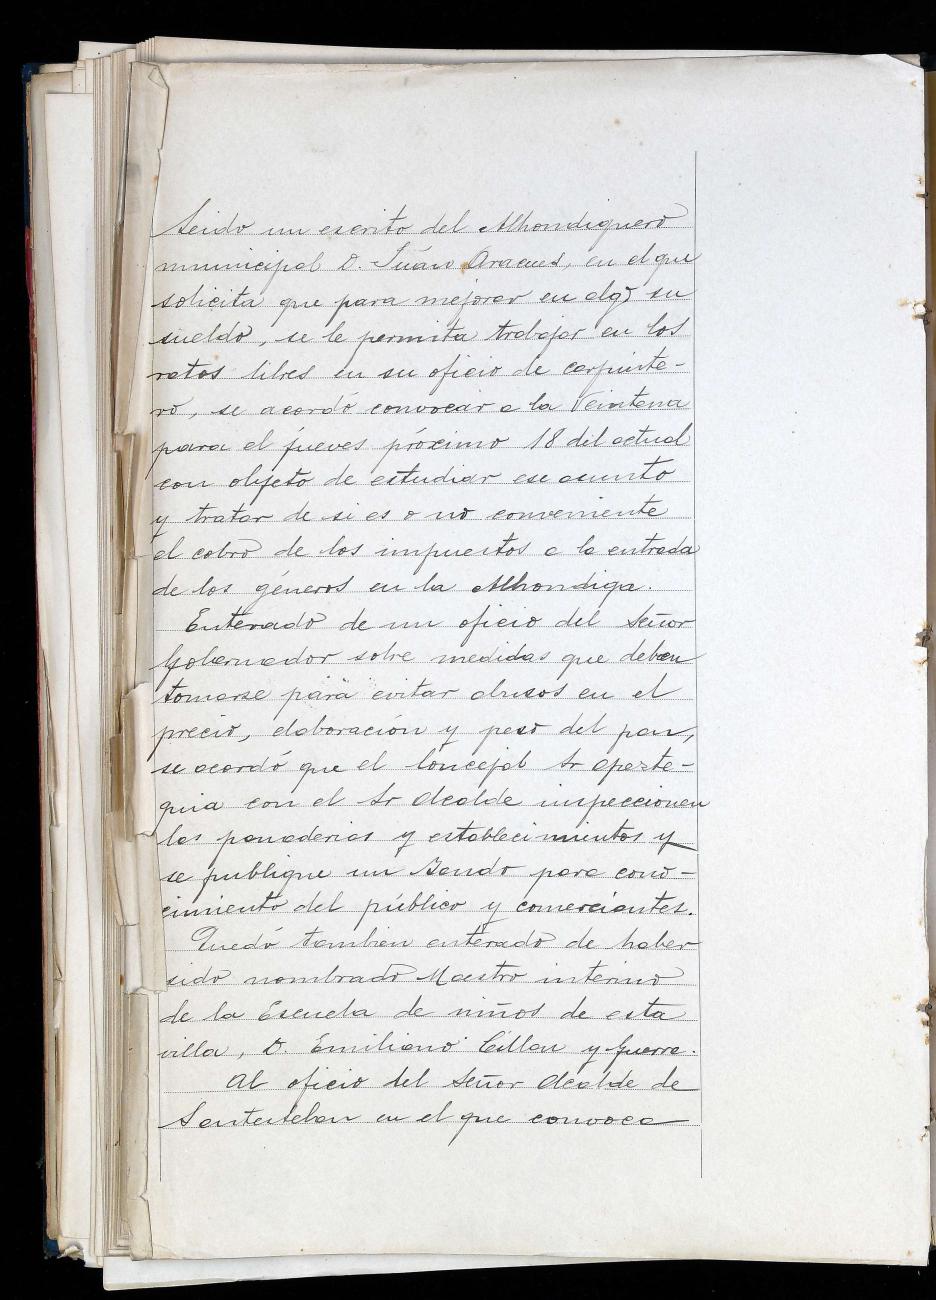 Leido un escrito del Alhondiguero
municipal D. Juan Aracues, en el que
solicita que para mejorar en algo su
sueldo, se le permita trabajar en los
ratos libres en su oficio de carpinte-
ro, se acordó convocar a la Veintena
para el jueves próximo 18 del actual
con objeto de estudiar ese asunto
y tratar de si es o no conveniente
el cobro de los impuestos a la entrada
de los géneros en la Alhondiga.
Enterado de un oficio del Señor
Gobernador sobre medidas que deben
tomarse para evitar abusos en el
precio, elaboración y peso del pan,
se acordó que el Concejal Sr Apezte-
guia con el Sr Alcalde inspeccionen
las panaderias y establecimientos y
se publique un Bando para cono-
cimiento del público y comerciantes.
Quedó tambien enterado de haber
sido nombrado Maestro interino
de la Escuela de niños de esta
villa, D. Emiliano Cillan y Guerra.
Al oficio del Señor Alcalde de
Santesteban en el que convoca